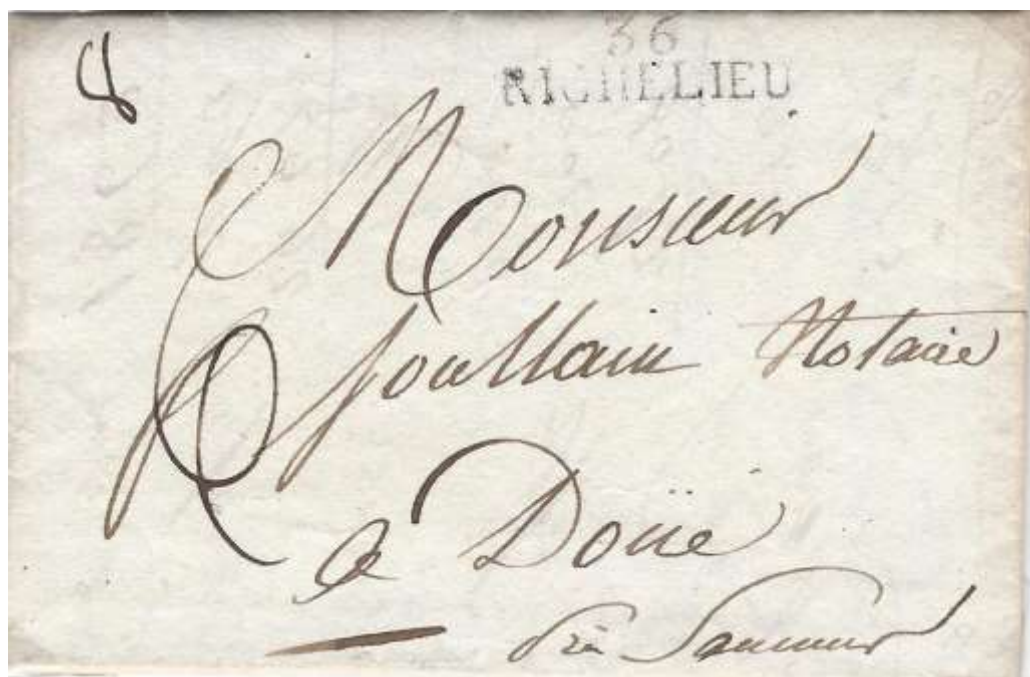 8
36
RICHELIEU
Monsieur
Joullain Notaire
a Doüé
Près Saumur